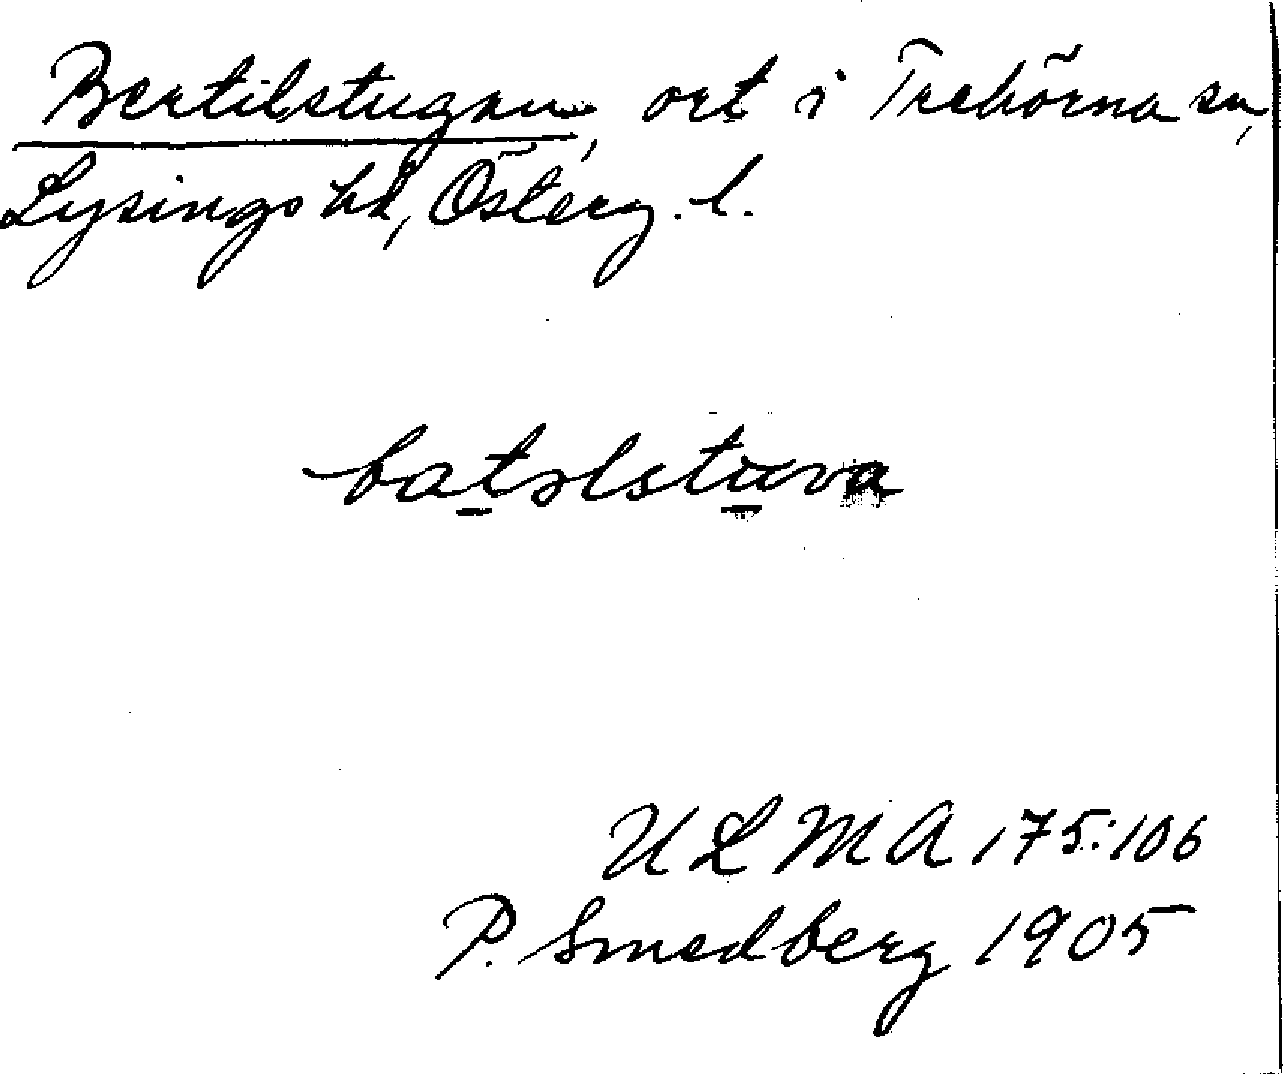 Bertilstugan, ort i Trehörna sn,
Lysings hd, Österg. l.
batəlstuva
ULMA 175:106
P. Smedberg 1905